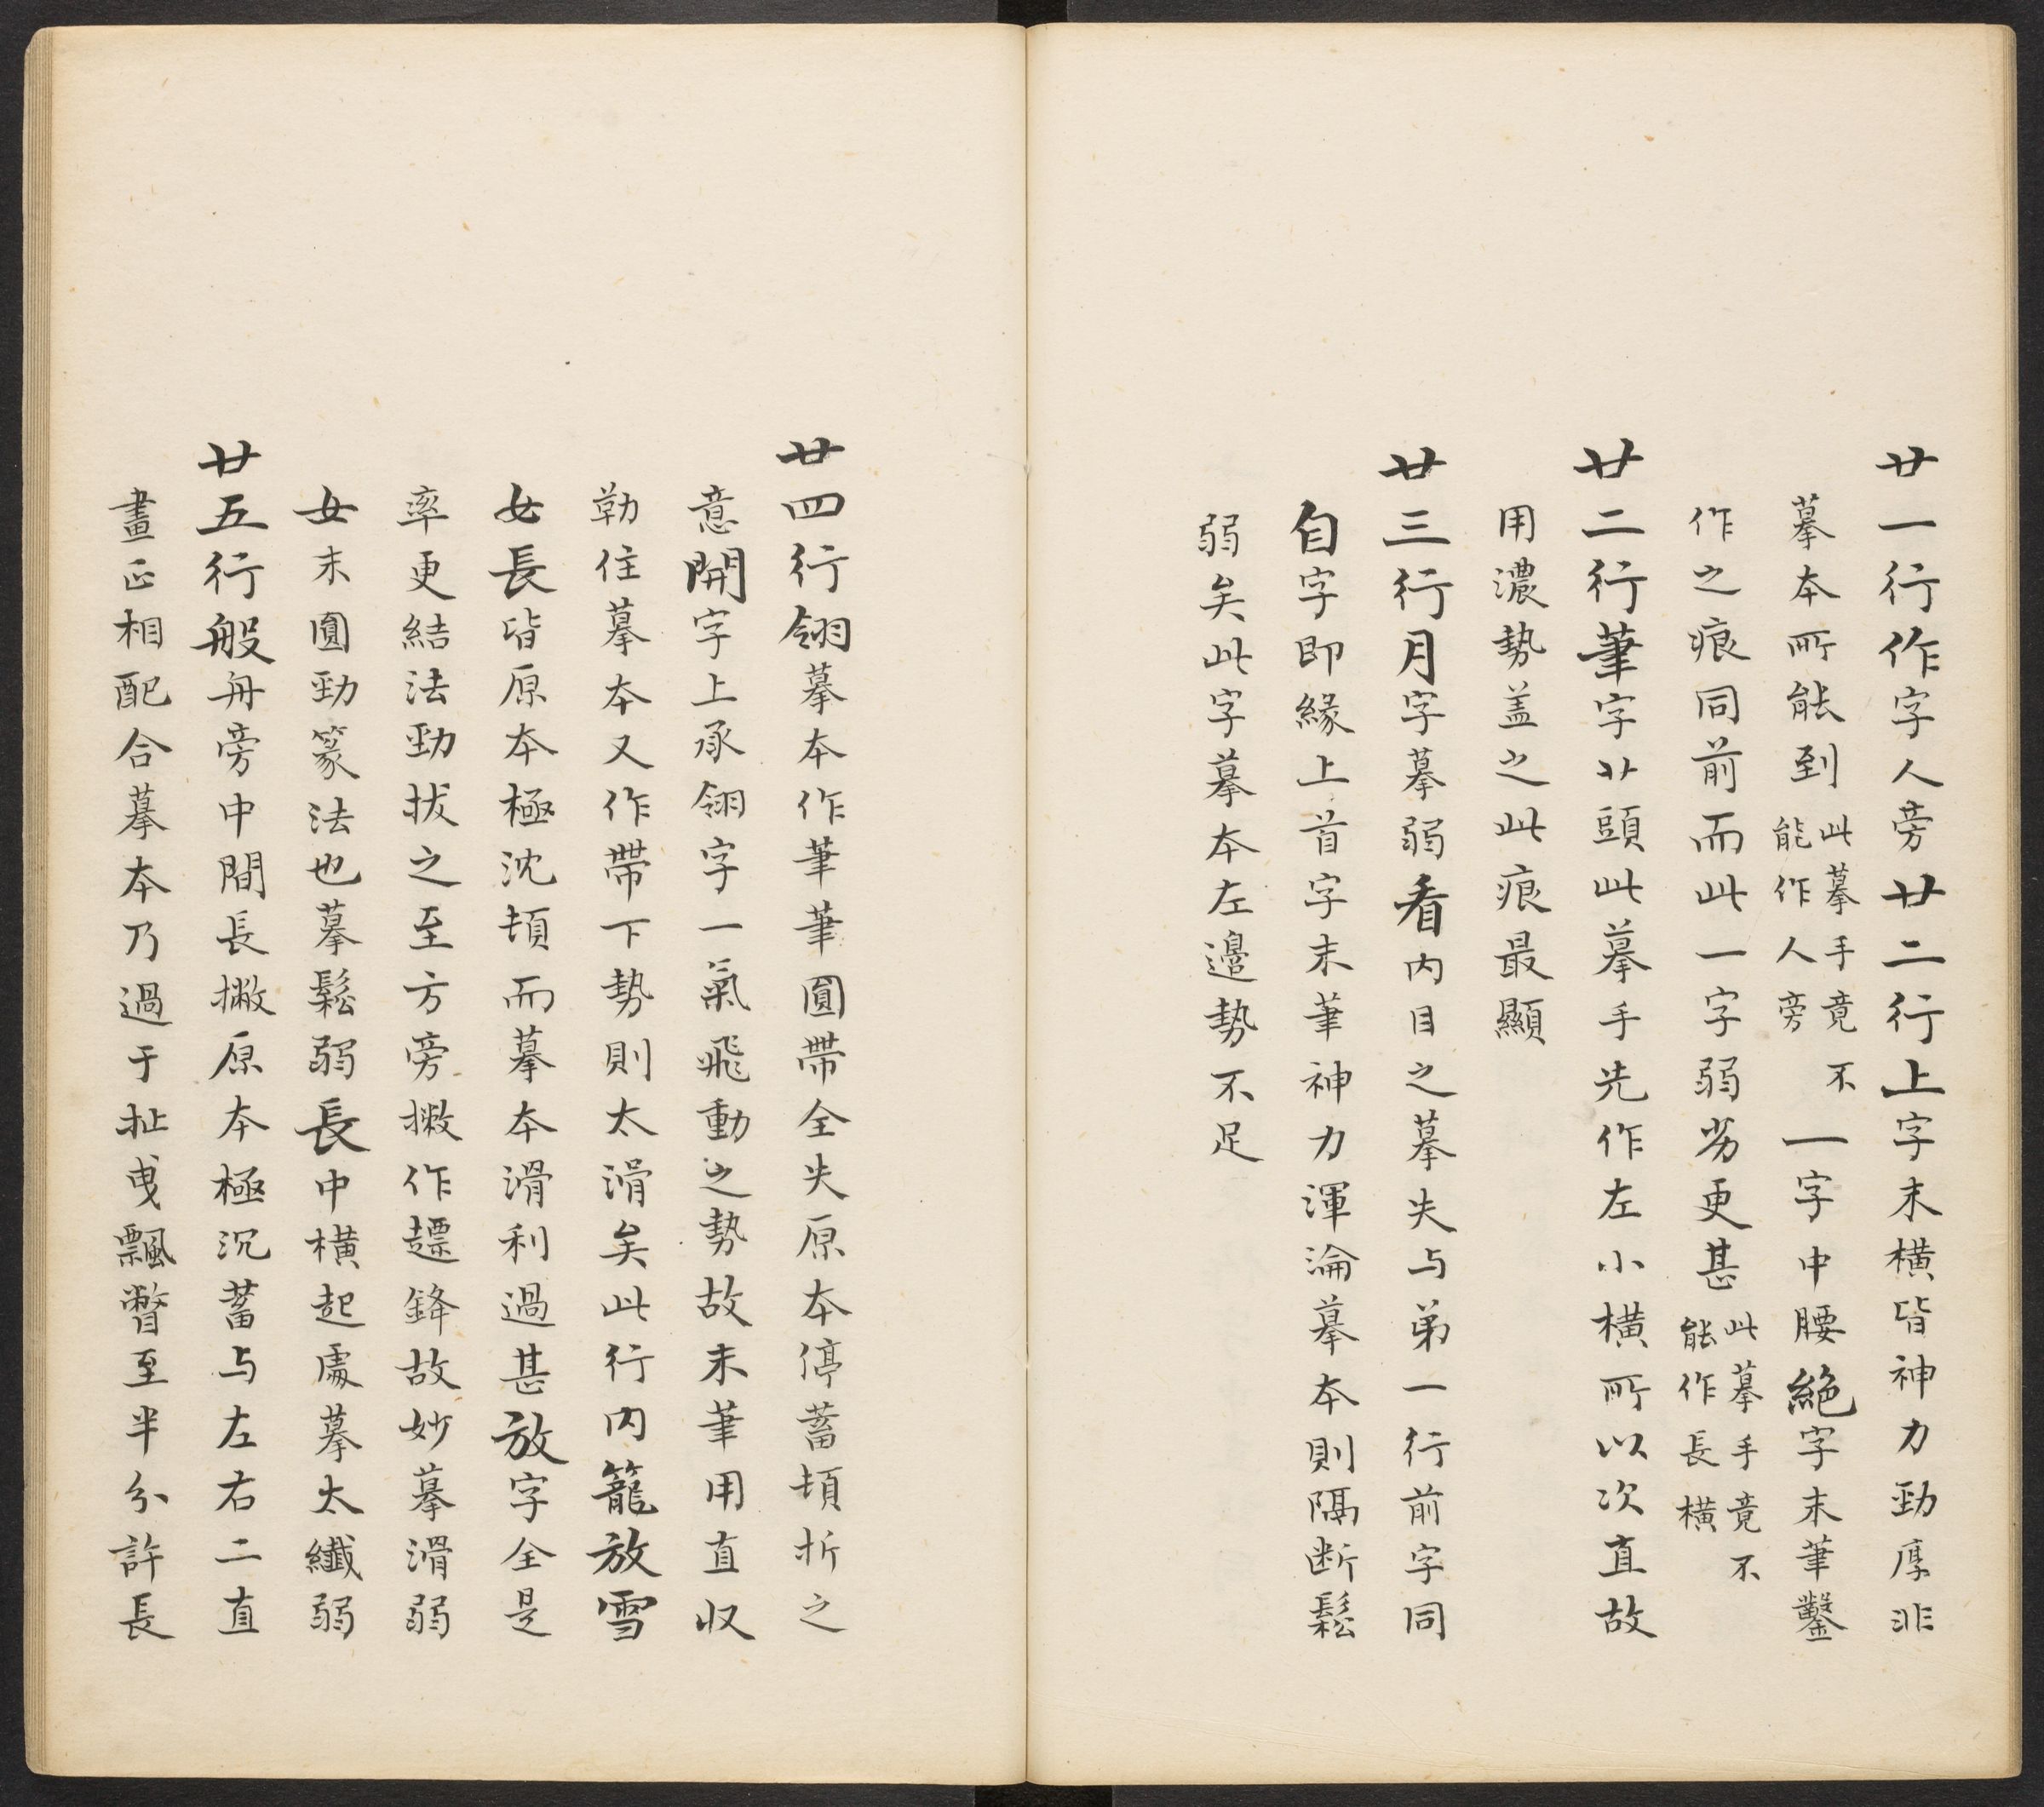 廿一行作字人旁廿二行上字末橫皆神力勁厚非
摹本所能到此摹手竟不能作人旁一字中腰絕字末筆鑿
作之痕同前而此一字弱劣更甚此摹手竟不能作長橫
廿二行筆字廾頭此摹手先作左小橫所以次直故
用濃勢盖之此痕最顯
廿三行月字摹弱看内目之摹失与弟一行前字同
自字即緣上首字末筆神力渾淪摹本則隔断鬆
弱矣此字摹本左邊勢不足
廿四行翎摹本作筆筆圓帶全失原本停蓄頓折之
意開字上承翎字一氣飛動之勢故末筆用直収
勒住摹本又作帶下勢則太滑矣此行内籠放雪
女長皆原本極沈頓而摹本滑利過甚放字全是
率更結法勁拔之至方旁撇作趯鋒故妙摹滑弱
女末圓勁篆法也摹鬆弱長中橫起處摹太纖弱
廿五行般舟旁中間長撇原本極沉蓄与左右二直
畫正相配合摹本乃過于扯曳飄瞥至半分許長